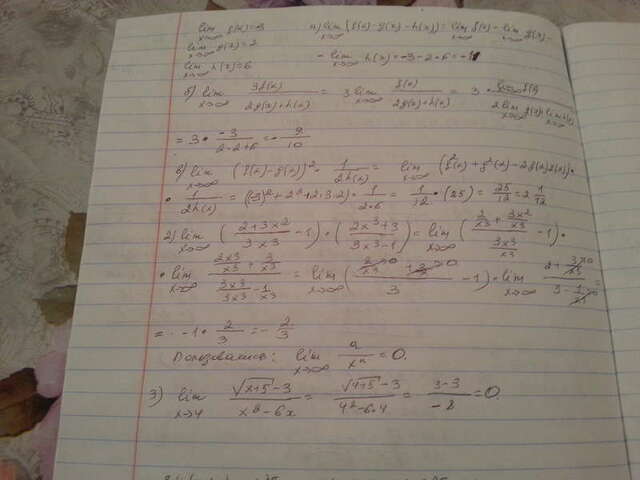 lim x→∞ f(x) = -3   а) lim x→∞ (f(x) - g(x) - h(x)) = lim x→∞ f(x) - lim x→∞ g(x) -
lim x→∞ g(x) = 2
lim x→∞ h(x) = 6   - lim x→∞ h(x) = -3 - 2 - 6 = -11
б) lim x→∞ 3f(x)/(2g(x)+h(x)) = 3 lim x→∞ f(x)/(2g(x)+h(x)) = 3 · lim f(x)/(2 lim x→∞ g(x) + lim h(x))
= 3 · -3/(2·2+6) = -9/10
в) lim x→∞ (f(x) - g(x))² · 1/(2h(x)) = lim x→∞ (f²(x) + g²(x) - 2f(x)g(x)) ·
· 1/(2h(x)) = ((-3)² + 2² + 2·3·2) · 1/(2·6) = 1/12 · (25) = 25/12 = 2 1/12
2) lim x→∞ ((2+3x²)/(3x³) - 1) · ((2x³+3)/(3x³-1)) = lim x→∞ ((2/x³ + 3x²/x³)/(3x³/x³) - 1) ·
· lim x→∞ (2x³/x³ + 3/x³)/(3x³/x³ - 1/x³) = lim x→∞ ((2/x³ + 3/x)/3 - 1) · lim x→∞ (2 + 3/x³)/(3 - 1/x³) =
= -1 · 2/3 = -2/3
Пользовались: lim x→∞ a/xⁿ = 0.
3) lim x→4 (√(x+5) - 3)/(x² - 6x) = (√(4+5) - 3)/(4² - 6·4) = (3-3)/(-8) = 0.